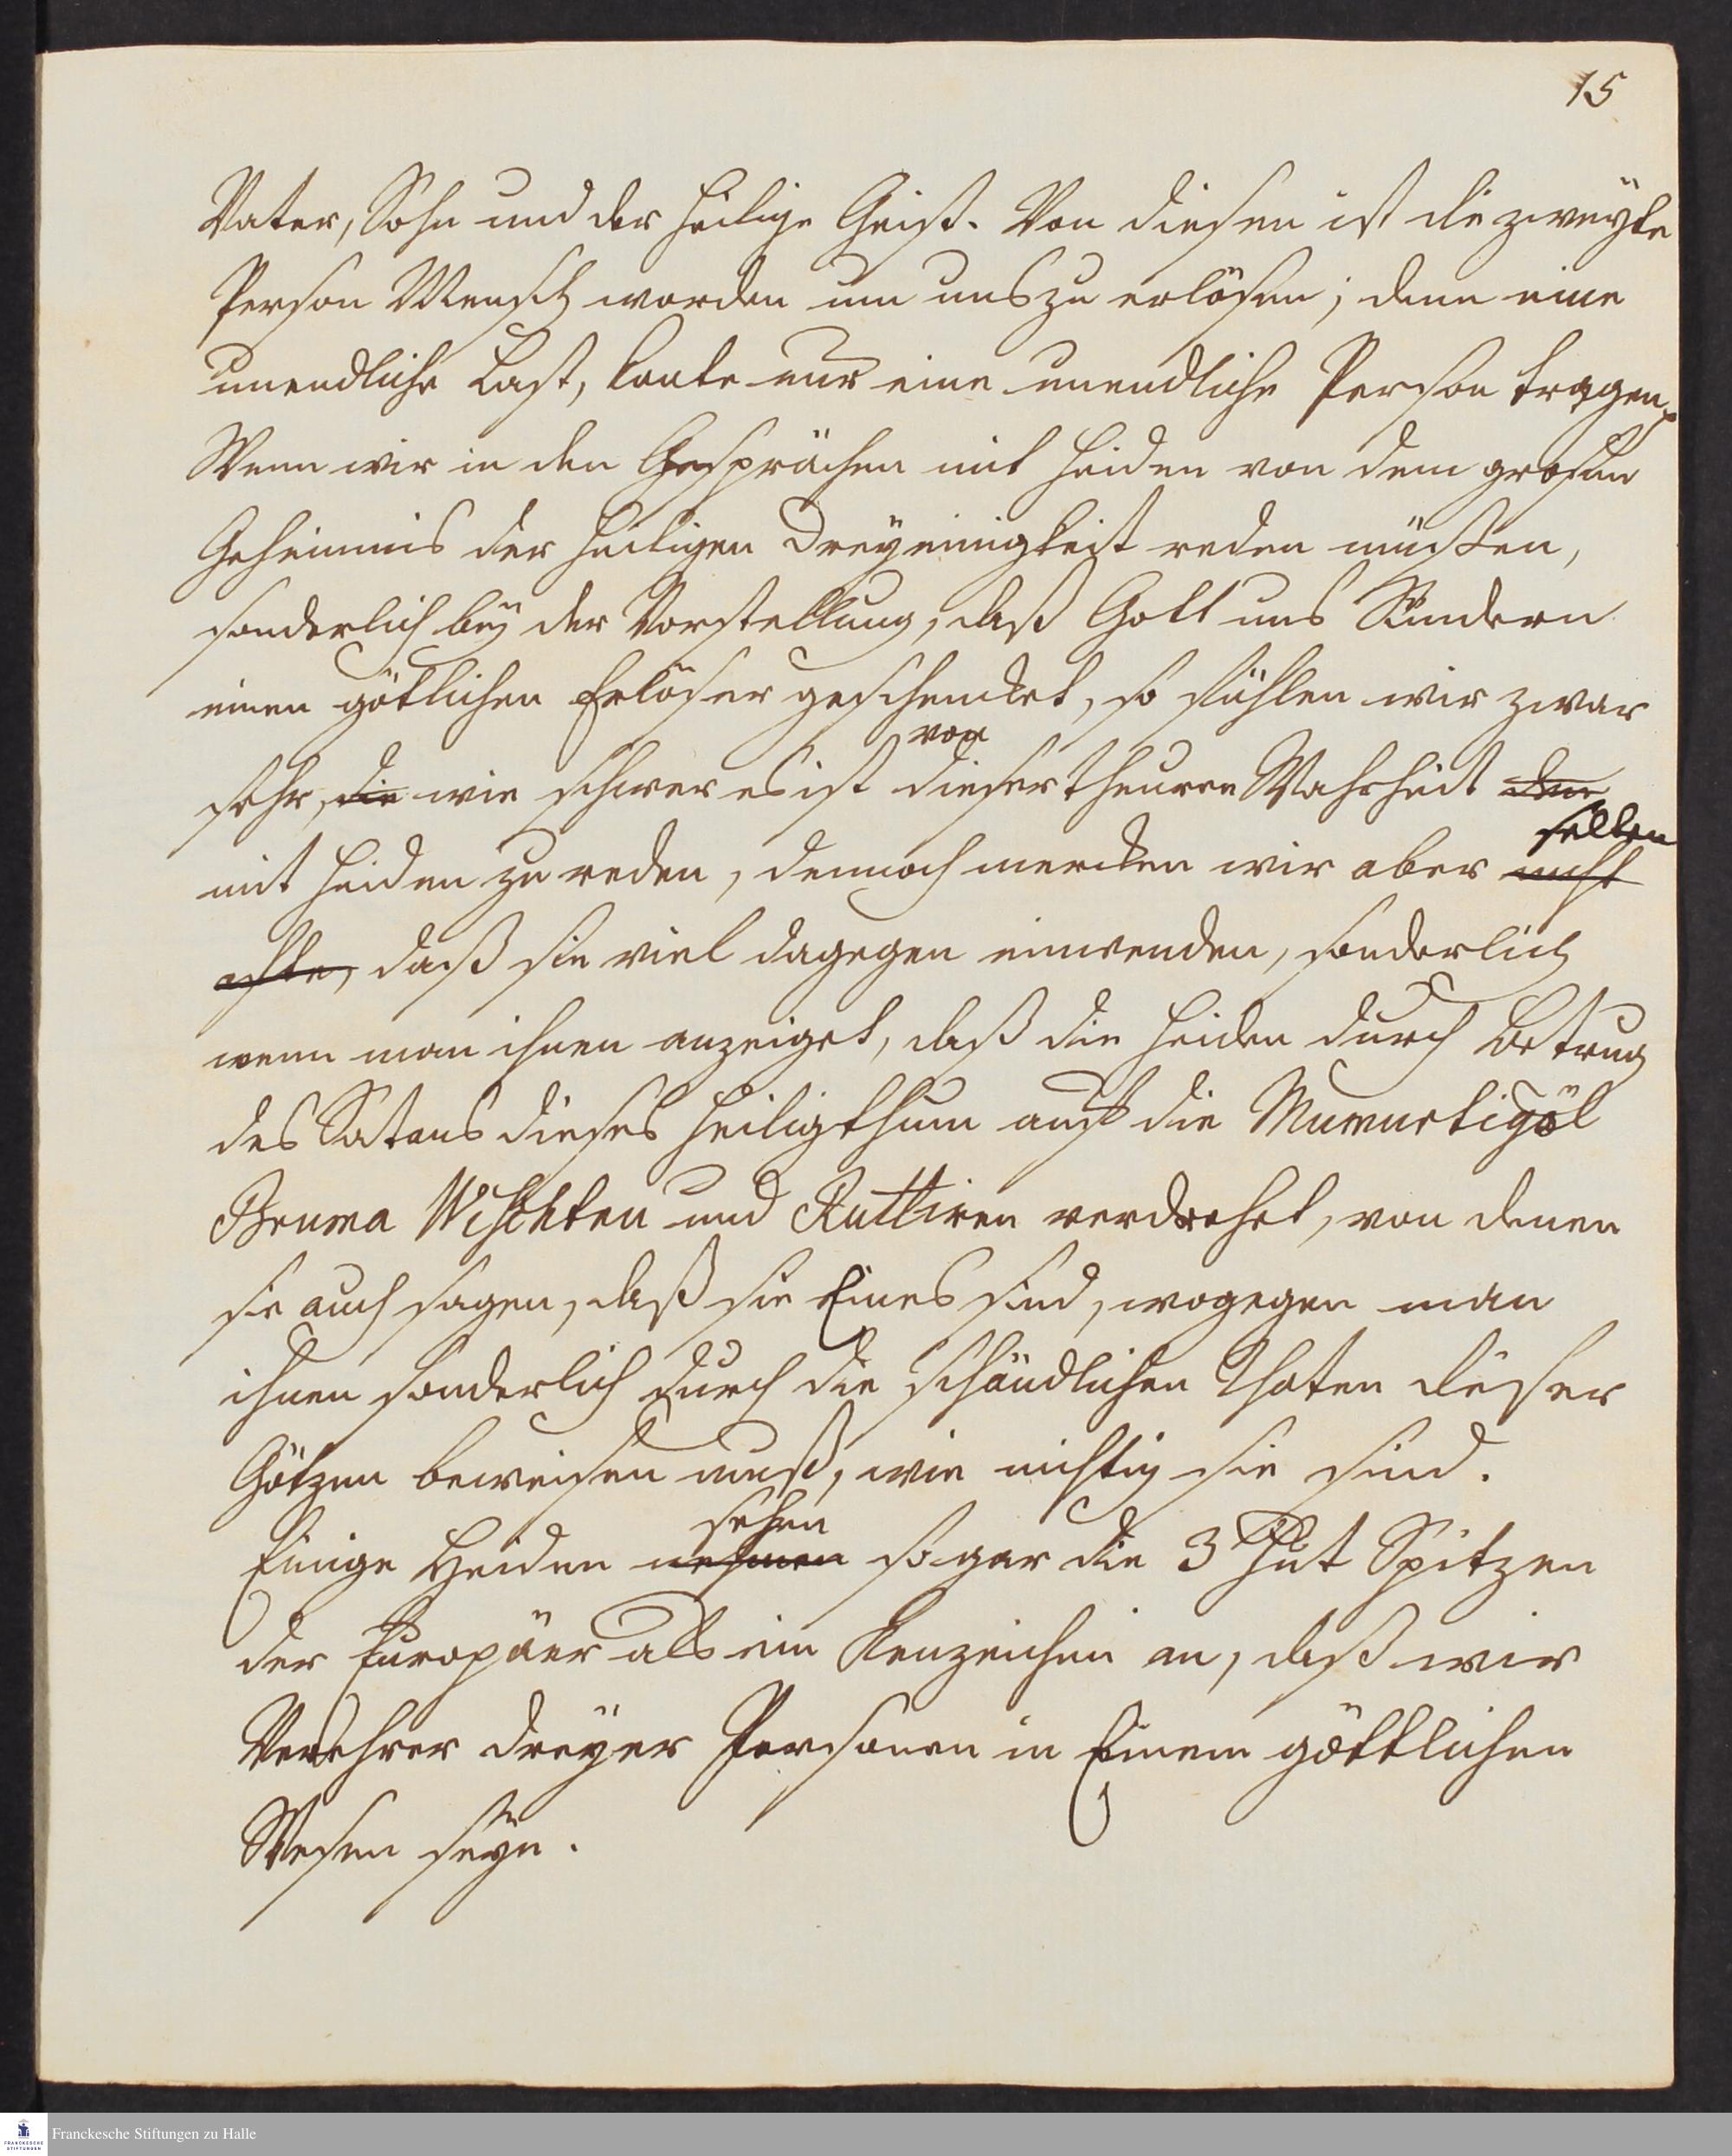 15
Vater, Sohn und der heilige Geist. Von diesen ist die zweyte
Person Mensch worden um uns zu erlösen; denn eine
unendliche Last, konte nur eine unendliche Person tragen.
Wenn wir in den Gesprächen mit Heiden von dem grosen
Geheimnis der heiligen Dreyeinigkeit reden müssen,
sonderlich bey der Vorstellung, daß Gott uns Sündern
einen götlichen Erlöser geschencket, so fühlen wir zwar
von
sehr, die wie schwer es ist dieser theuren Wahrheit
selten
mit Heiden zu reden, dennoch mercken wir aber nicht
offte, daß sie viel dagegen einwenden, sonderlich
wenn man ihnen anzeiget, daß die Heiden durch Betrug
des Satans dieses Heiligthum auf die Mumurtigöl
Bruma Wischtnu und Ruttiren verdrehet, von denen
sie auch sagen, daß sie Eines sind, wogegen man
ihnen sonderlich durch die schändlichen Thaten dieser
Götzen beweisen muß, wie nichtig sie sind.
sehen
Einige Heiden nehmen sogar die 3 Hut Spitzen
der Europäer als ein Kenzeichen an, daß wir
Verehrer dreyer Personen in Einem göttlichen
Wesen seyn.
Franckesche Stiftungen zu Halle
FRANCKESCHE
STIFTUNGEN